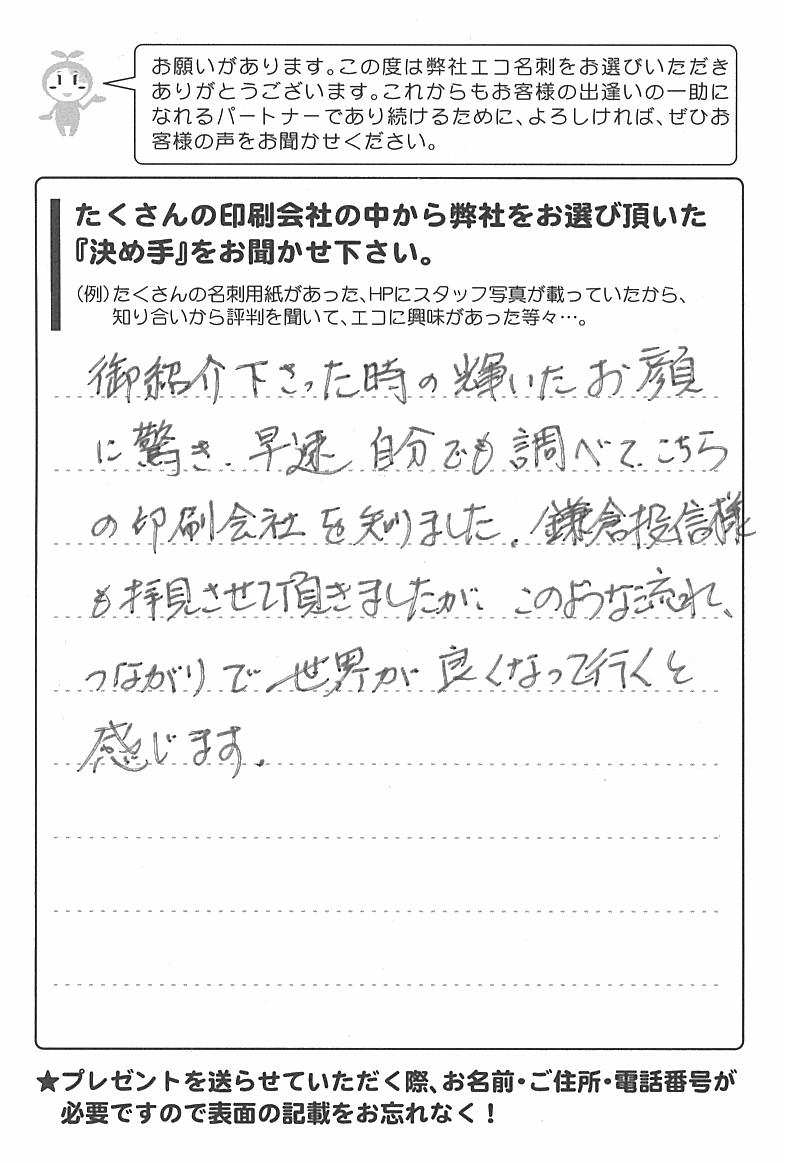 お願いがあります。この度は弊社エコ名刺をお選びいただき
ありがとうございます。これからもお客様の出逢いの一助に
なれるパートナーであり続けるために、よろしければ、ぜひお
客様の声をお聞かせください。
たくさんの印刷会社の中から弊社をお選び頂いた
『決め手』をお聞かせ下さい。
(例)たくさんの名刺用紙があった、HPにスタッフ写真が載っていたから、
知り合いから評判を聞いて、エコに興味があった等々…。
御紹介下さった時の輝いたお顔
に驚き、早速自分でも調べて、こちら
の印刷会社を知りました。鎌倉投信様
も拝見させて頂きましたが、このような流れ、
つながりで世界が良くなって行くと
感じます。
★プレゼントを送らせていただく際、お名前・ご住所・電話番号が
必要ですので表面の記載をお忘れなく!